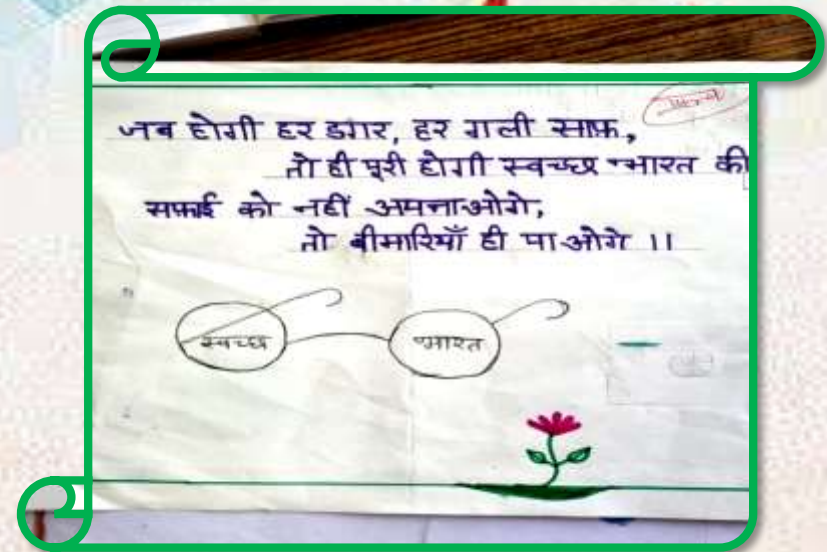 जब होगी हर डगर, हर गली साफ़,
तो ही पूरी होगी स्वच्छ भारत की
सफाई को नहीं अपनाओगे,
तो बीमारियाँ ही पाओगे ।।
स्वच्छ भारत